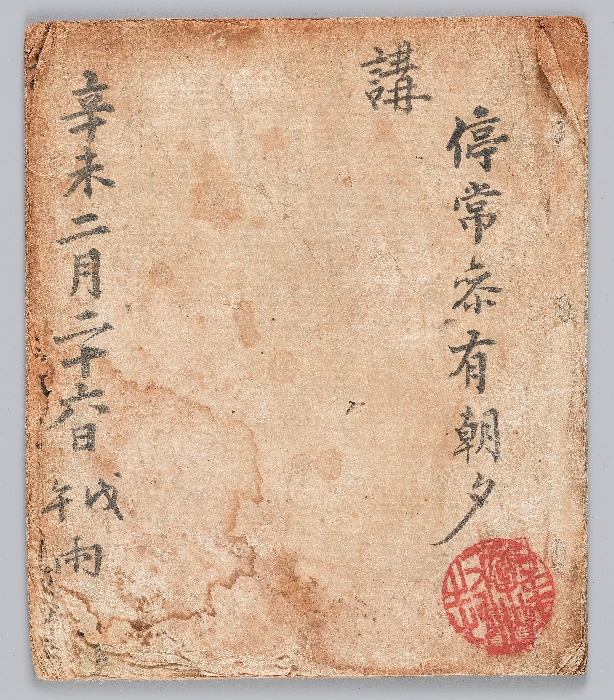 停常參有朝夕
講
辛未二月二十六日戊午雨